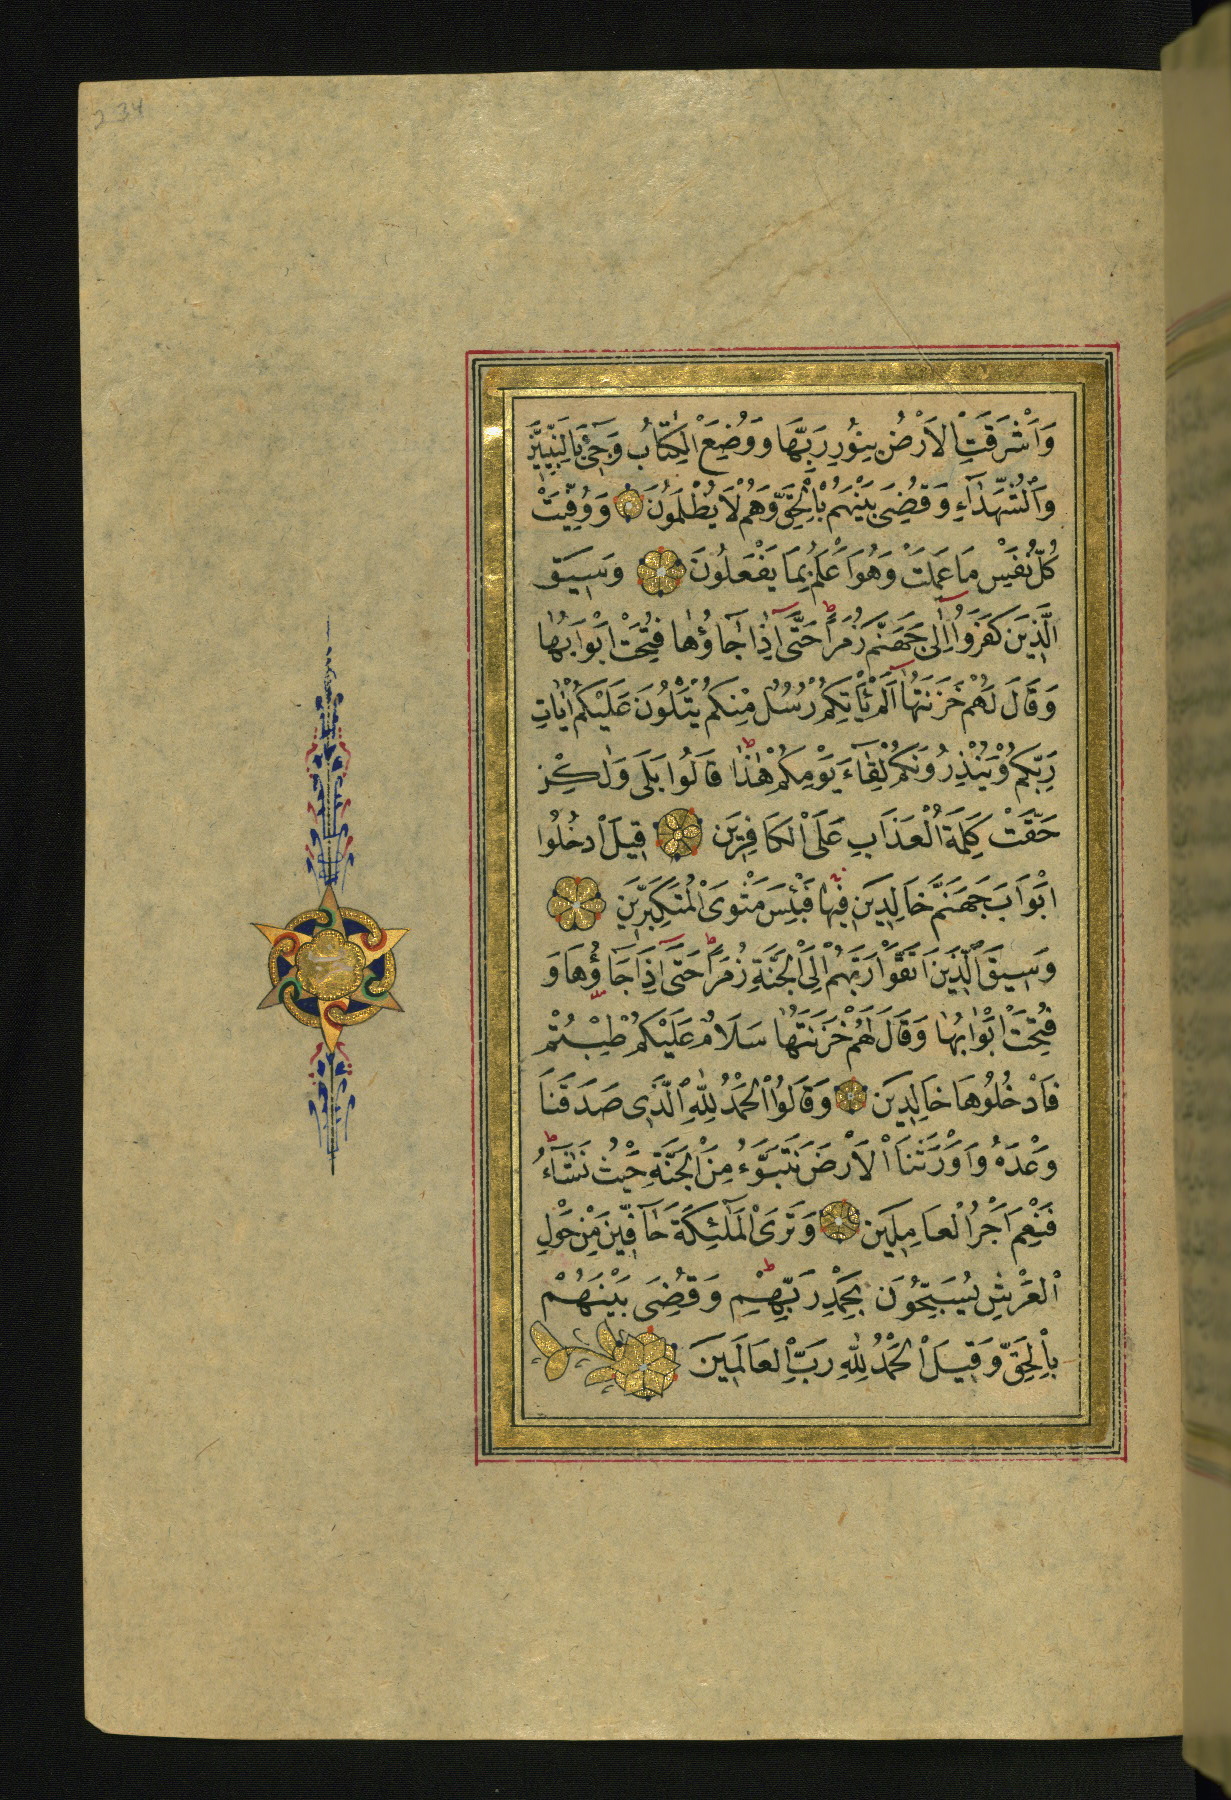 234
وَاَشْرَقَتِ الْاَرْضُ بِنُورِ رَبِّهَا وَوُضِعَ الْكِتَابُ وَجِيءَ بِالنَّبِيِّينَ
وَالشُّهَدَاءِ وَقُضِيَ بَيْنَهُمْ بِالْحَقِّ وَهُمْ لَا يُظْلَمُونَ وَوُفِّيَتْ
كُلُّ نَفْسٍ مَا عَمِلَتْ وَهُوَ اَعْلَمُ بِمَا يَفْعَلُونَ وَسِيقَ
الَّذِينَ كَفَرُوا اِلٰى جَهَنَّمَ زُمَرًا حَتّٰى اِذَا جَاؤُهَا فُتِحَتْ اَبْوَابُهَا
وَقَالَ لَهُمْ خَزَنَتُهَا اَلَمْ يَأْتِكُمْ رُسُلٌ مِنْكُمْ يَتْلُونَ عَلَيْكُمْ اٰيَاتِ
رَبِّكُمْ وَيُنْذِرُونَكُمْ لِقَاءَ يَوْمِكُمْ هٰذَا قَالُوا بَلٰى وَلٰكِنْ
حَقَّتْ كَلِمَةُ الْعَذَابِ عَلَى الْكَافِرِينَ قِيلَ ادْخُلُوا
اَبْوَابَ جَهَنَّمَ خَالِدِينَ فِيهَا فَبِئْسَ مَثْوَى الْمُتَكَبِّرِينَ
وَسِيقَ الَّذِينَ اتَّقَوْا رَبَّهُمْ اِلَى الْجَنَّةِ زُمَرًا حَتّٰى اِذَا جَاؤُهَا وَ
فُتِحَتْ اَبْوَابُهَا وَقَالَ لَهُمْ خَزَنَتُهَا سَلَامٌ عَلَيْكُمْ طِبْتُمْ
فَادْخُلُوهَا خَالِدِينَ وَقَالُوا الْحَمْدُ لِلّٰهِ الَّذِي صَدَقَنَا
وَعْدَهُ وَاَوْرَثَنَا الْاَرْضَ نَتَبَوَّءُ مِنَ الْجَنَّةِ حَيْثُ نَشَاءُ
فَنِعْمَ اَجْرُ الْعَامِلِينَ وَتَرَى الْمَلٰئِكَةَ حَافِّينَ مِنْ حَوْلِ
الْعَرْشِ يُسَبِّحُونَ بِحَمْدِ رَبِّهِمْ وَقُضِيَ بَيْنَهُمْ
بِالْحَقِّ وَقِيلَ الْحَمْدُ لِلّٰهِ رَبِّ الْعَالَمِينَ